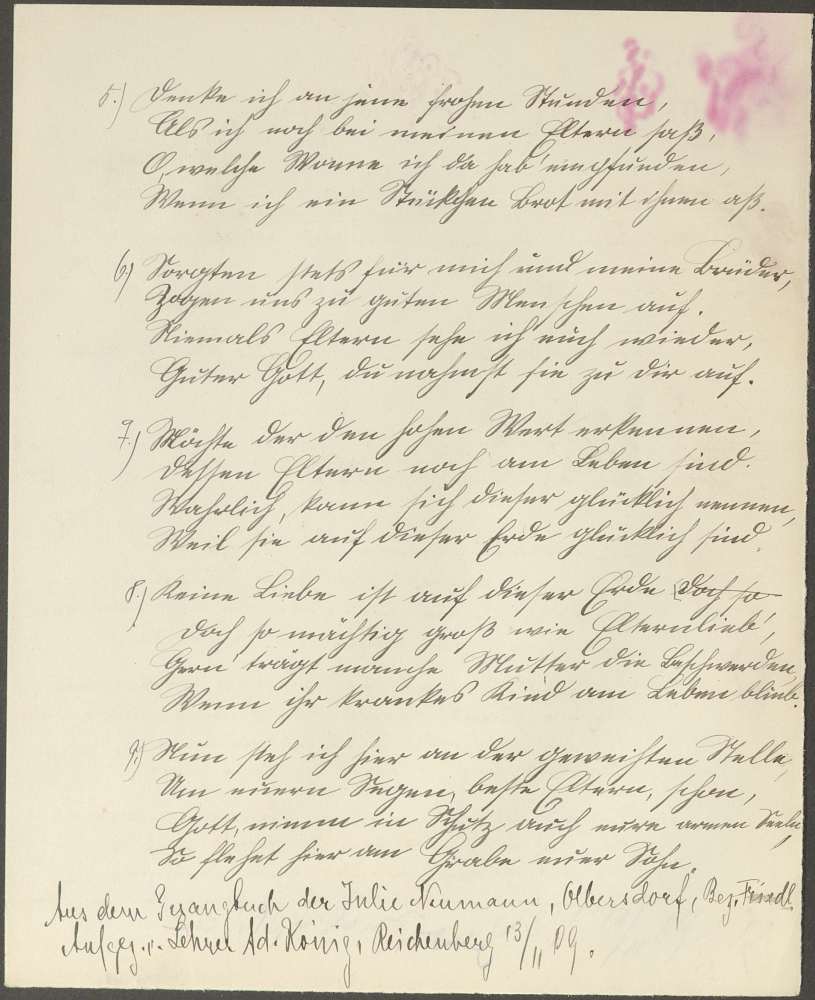 5.) Denke ich an jene frohen Stunden,
Als ich noch bei meinen Eltern saß,
O, welche Wonne ich da hab' empfunden,
Wenn ich ein Stükchen Brot mit ihnen aß.
6.) Sorgten stets für mich und meine Brüder,
Zogen uns zu guten Menschen auf.
Niemals Eltern sehe ich euch wieder,
Guter Gott, du nahmst sie zu dir auf.
7.) Möchte der den hohen Wert erkennen,
Dessen Eltern noch am Leben sind.
Wahrlich, kann sich dieser glücklich nennen,
Weil sie auf dieser Erde glücklich sind.
8.) Keine Liebe ist auf dieser Erde Doch so
Doch so mächtig groß wie Elternlieb',
Gern' trägt manche Mutter die Beschwerden,
Wenn ihr krankes Kind am Leben blieb.
9.) Nun steh ich hier an der geweihten Stelle,
Um euern Segen, beste Eltern, schon,
Gott, nimm in Schutz auch eure armen Seeln,
So flehet hier am Grabe euer Sohn.
Aus dem Gesangbuch der Julie Neumann, Olbersdorf, Bez. Friedl.
Aufgez. v. Lehrer Ad. König, Reichenberg 13/11 09.